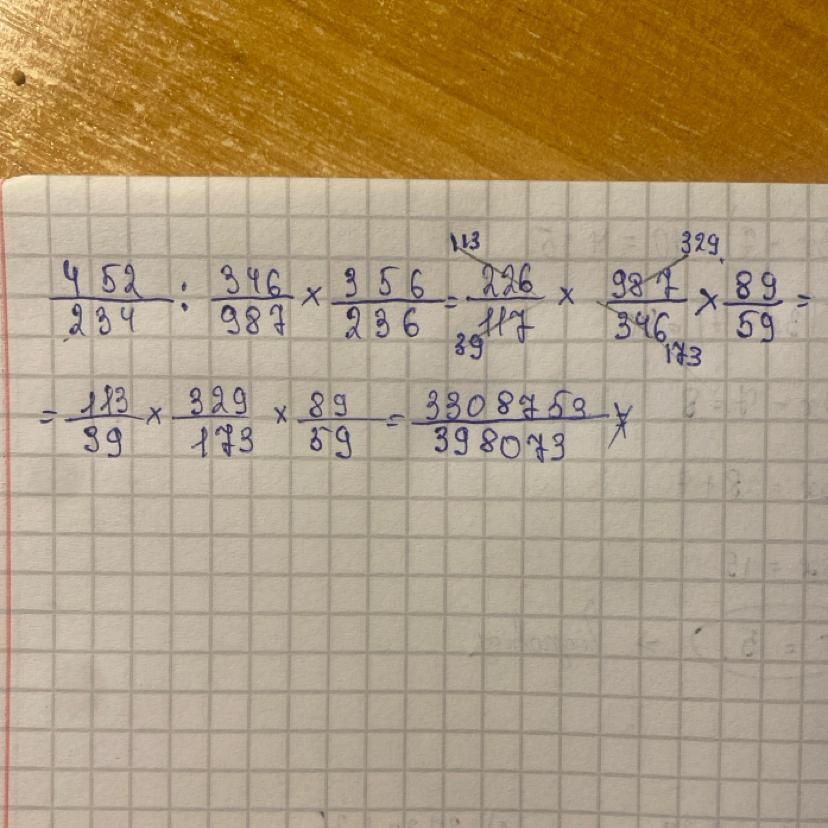 113 329
452/234 : 346/987 × 356/236 = 226/117 × 987/346 × 89/59 =
39 173
= 113/39 × 329/173 × 89/59 = 3308753/398073